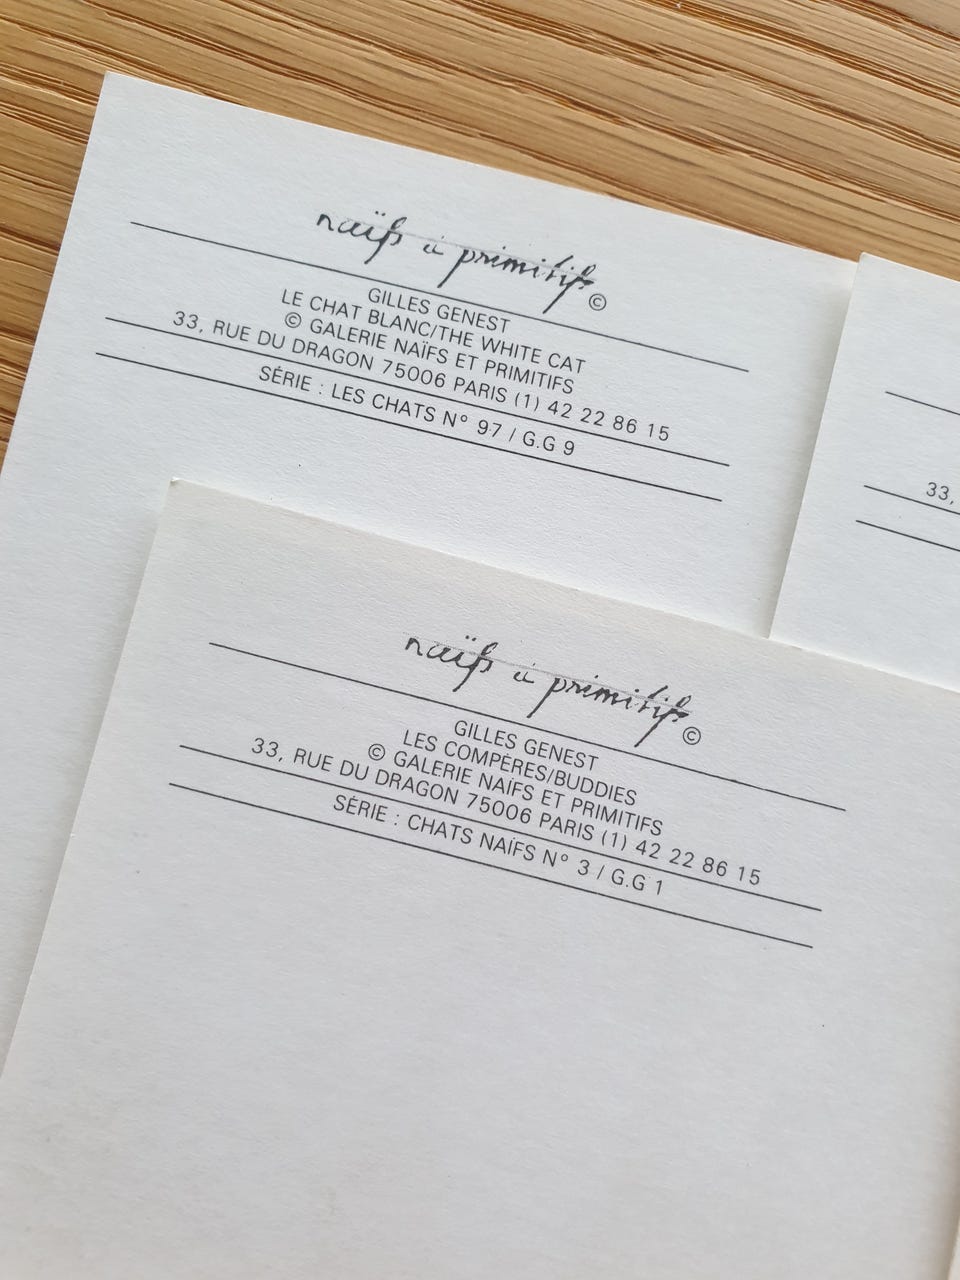 naïfs à primitifs©
GILLES GENEST
LE CHAT BLANC/THE WHITE CAT
© GALERIE NAÏFS ET PRIMITIFS
33, RUE DU DRAGON 75006 PARIS (1) 42 22 86 15
SÉRIE : LES CHATS N° 97 / G.G 9
33,
naïfs à primitifs©
GILLES GENEST
LES COMPÈRES/BUDDIES
© GALERIE NAÏFS ET PRIMITIFS
33, RUE DU DRAGON 75006 PARIS (1) 42 22 86 15
SÉRIE : CHATS NAÏFS N° 3 / G.G 1